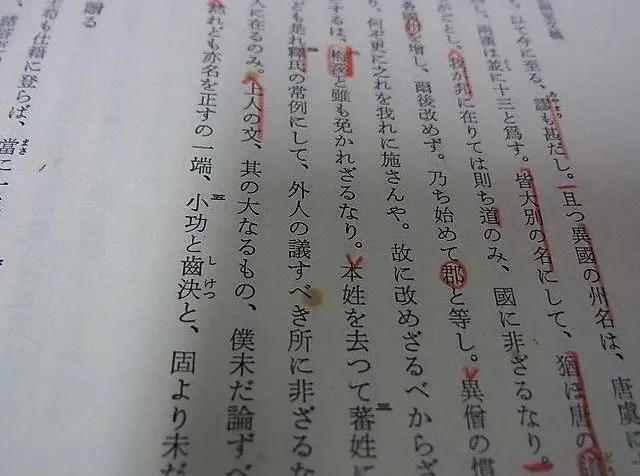 州名は、唐虞に
以て今に至る、謬も甚だし。且つ異國の州名は、唐虞に
兩漢は並に十三と爲す。皆大別の名にして、猶ほ唐の
ごとし。我が邦に在りては則ち道のみ、國に非ざるなり。
州を増し、爾後改めず。乃ち始めて郡と等し。異僧の慣
り、何ぞ更に之れを我れに施さんや。故に改めざるべからざ
するは、
と雖も免かれざるなり。本姓を去つて蕃姓に
ども是れ釋氏の常例にして、外人の議すべき所に非ざるな
人に在るのみ。上人の文、其の大なるもの、僕未だ論ずべ
れども亦名を正すの一端、小功と齒決と、固より未だ
贈る
和も仕籍に登らば、當に